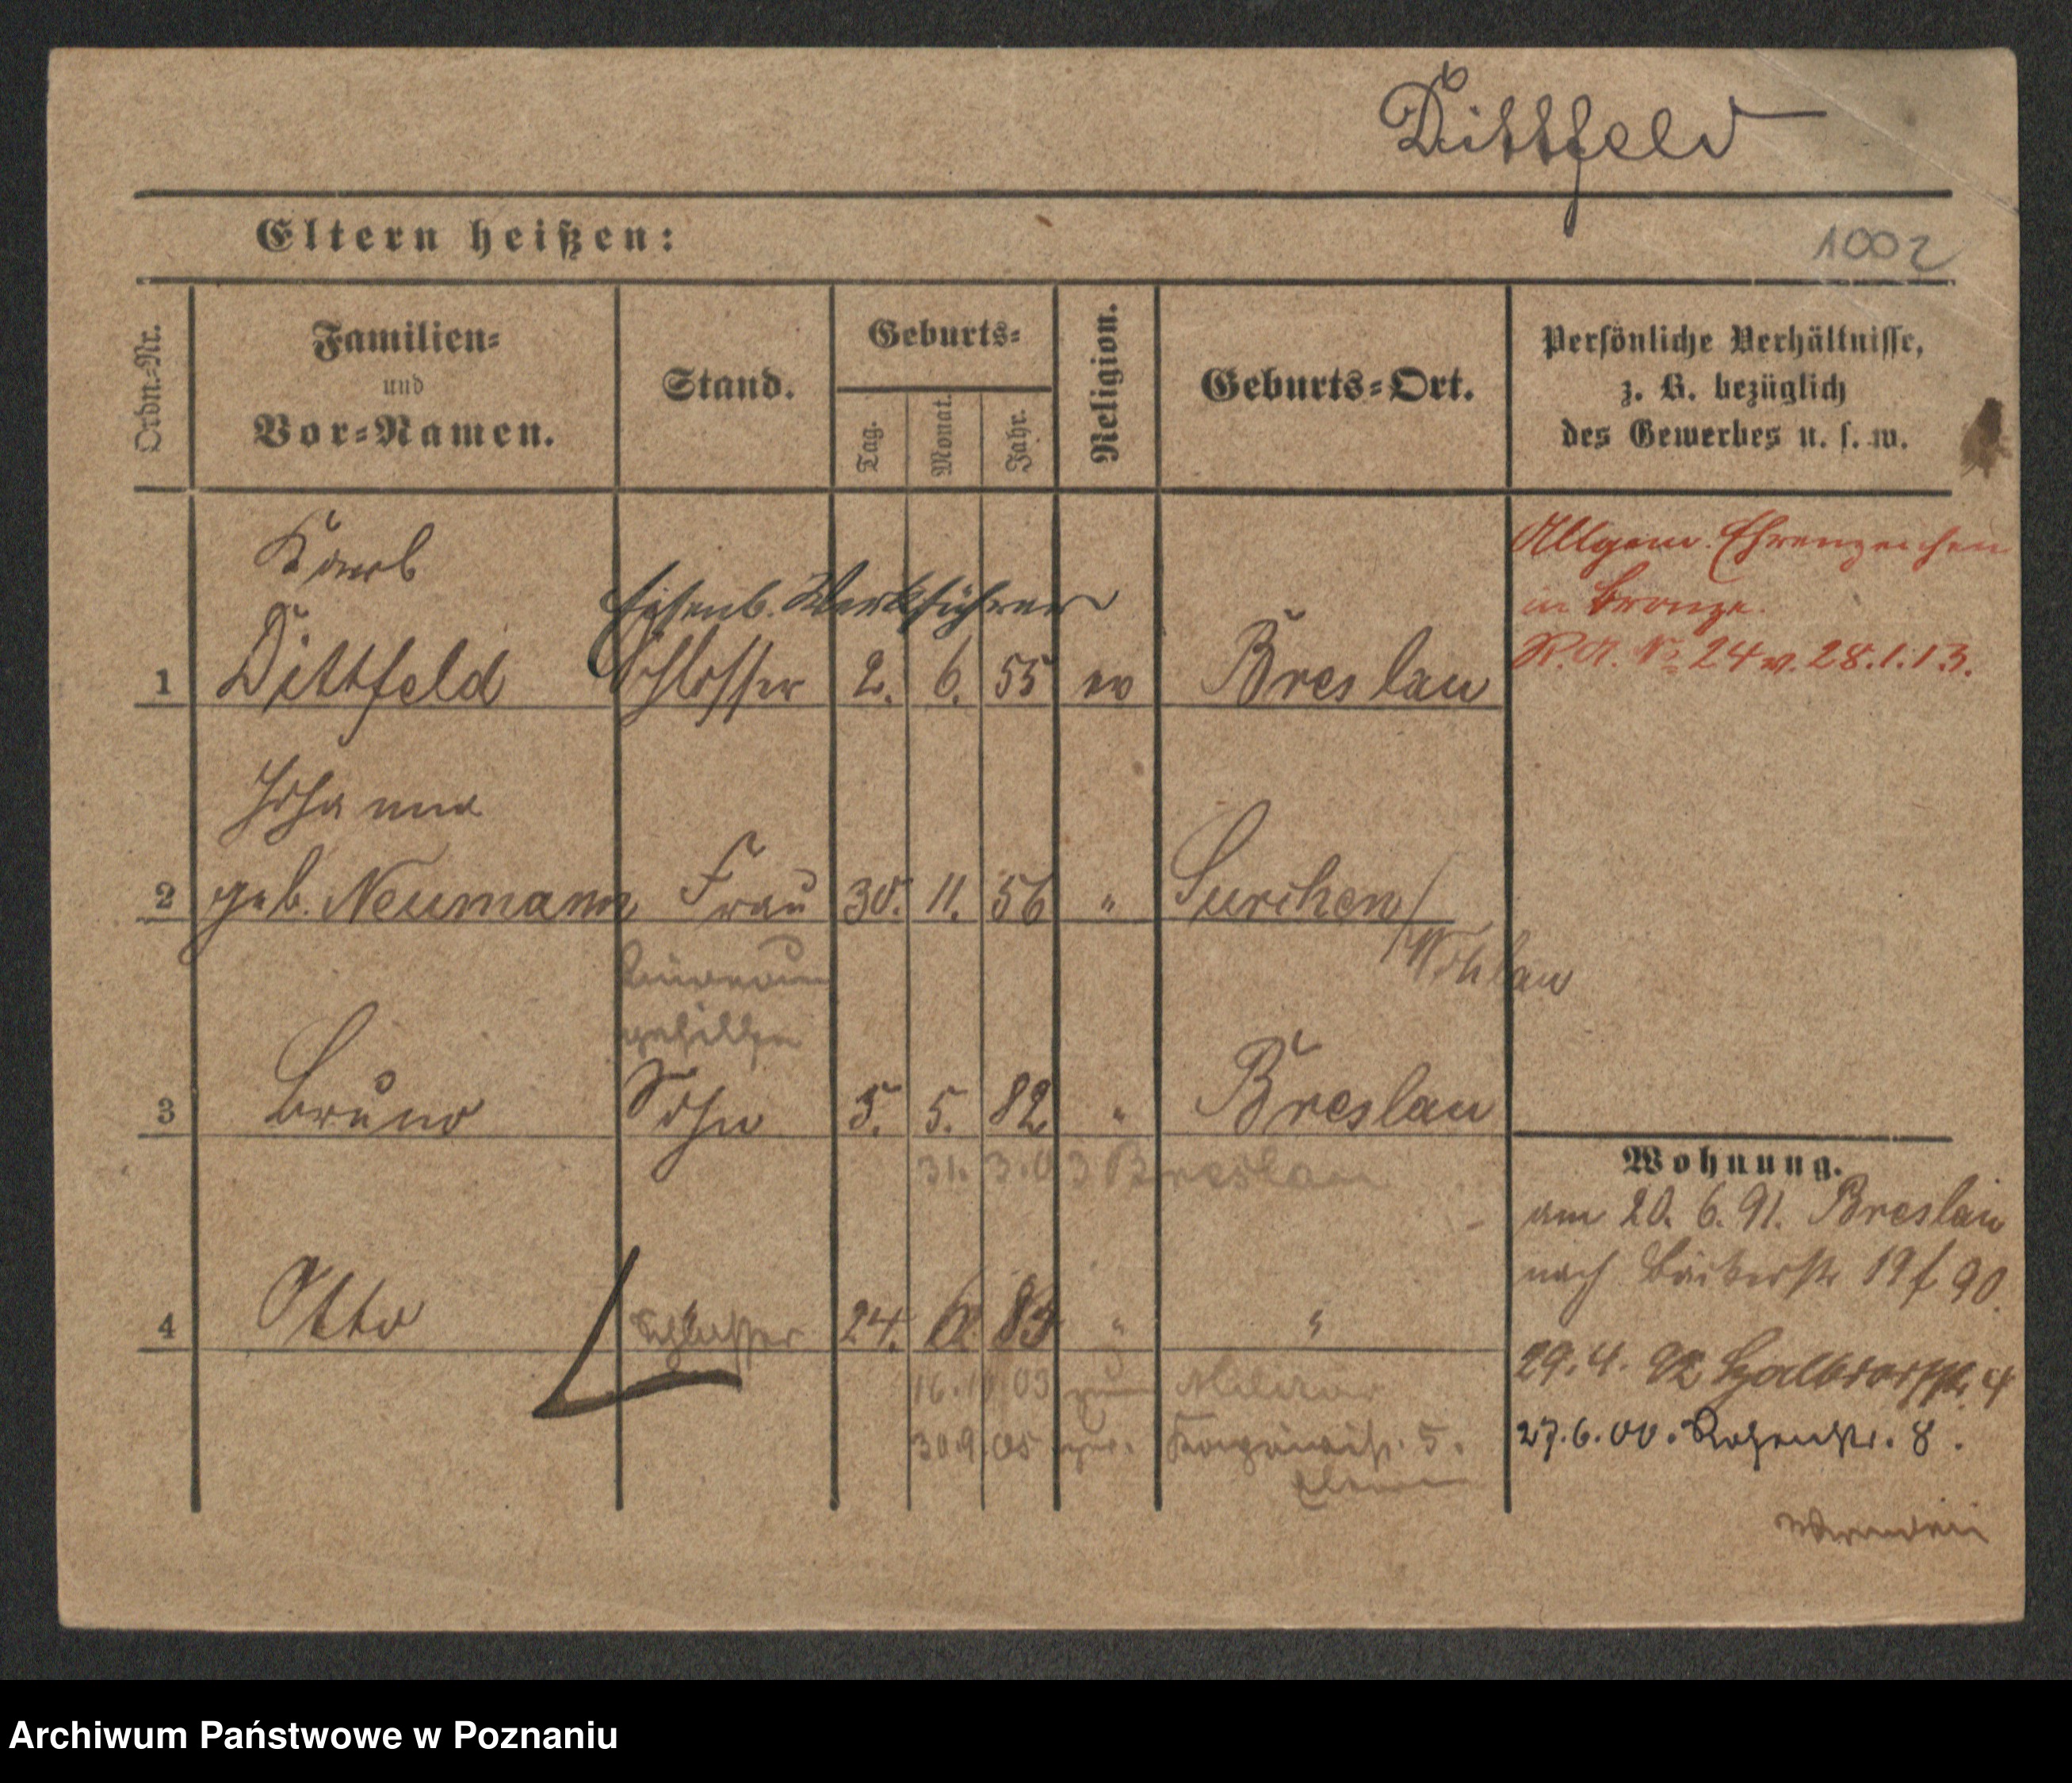 Dittfeld
Eltern heißen:
1002
Ordn.-Nr.
Familien-
und
Vor-Namen.
Stand.
Geburts-
Tag.
Monat.
Jahr.
Religion.
Geburts-Ort.
Persönliche Verhältnisse,
z. B. bezüglich
des Gewerbes u. s. w.
Karl
Eisenb. Werkführer
1 Dittfeld Schlosser 2. 6. 55 ev Breslau
Allgem. Ehrenzeichen
in Bronze.
P. A. No 24 v. 28.1.13.
Johanna
2 geb. Neumann Frau 30. 11. 56 " Surchen/
Wohlau
gehilfe
3 Bruno Sohn 5. 5. 82 " Breslau
31. 3. 03 Breslau
4 Otto Schlosser 24. 83 " "
16. 10 03 zum Militär
30.9.05 zur. 5.
Eltern
Wohnung.
am 20. 6. 91. Breslau
nach Bäckerstr 19 f 90.
29. 4. 92 Halbdorfstr. 4
27. 6. 00. Rosenstr. 8.